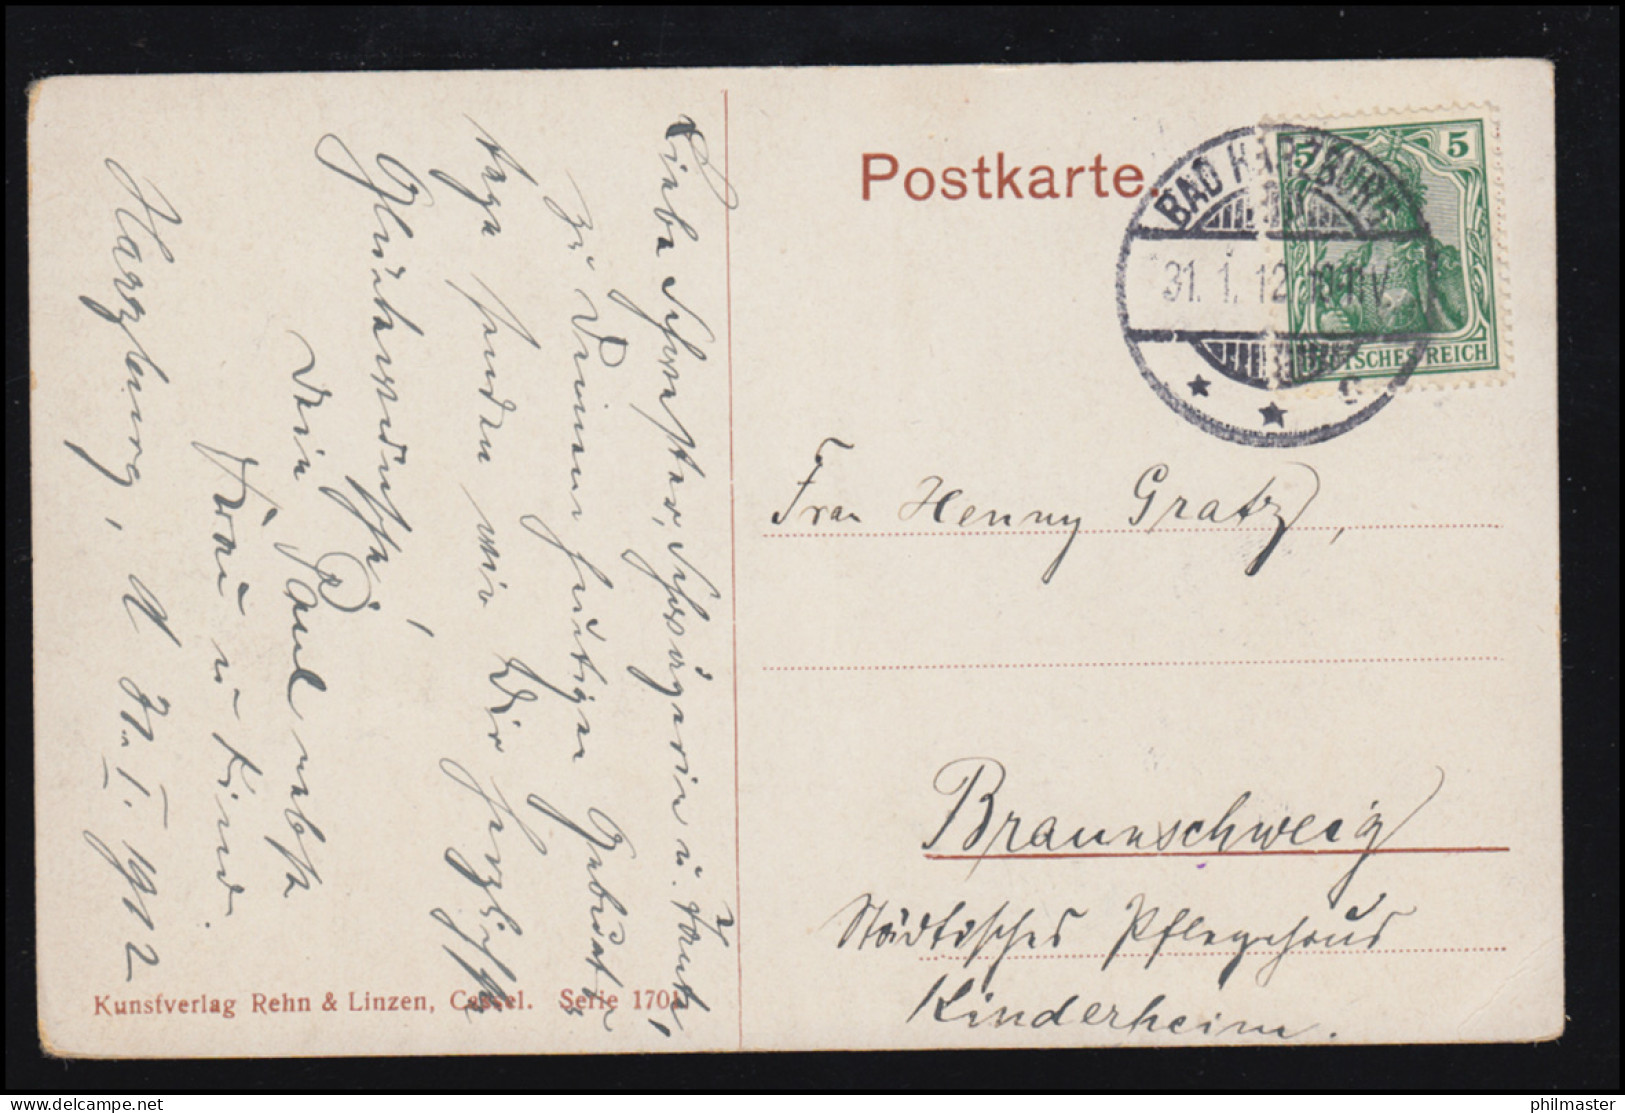 Postkarte.
BAD HARZBURG
31. 1. 12. 10-11 V.
5 5
DEUTSCHES REICH
Frau Henny Gratz,
Braunschweig
Städtisches Pflegehaus
Kinderheim.
Liebe Schwester, Schwägerin u. Tante,
zu Deinem heutigen Geburts
tage senden wir Dir herzliche
Glückwünsche,
Dein Paul nebst
Frau u Kind
Harzburg, d 31. I. 1912
Kunstverlag Rehn & Linzen, Cassel. Serie 1701
philmaster